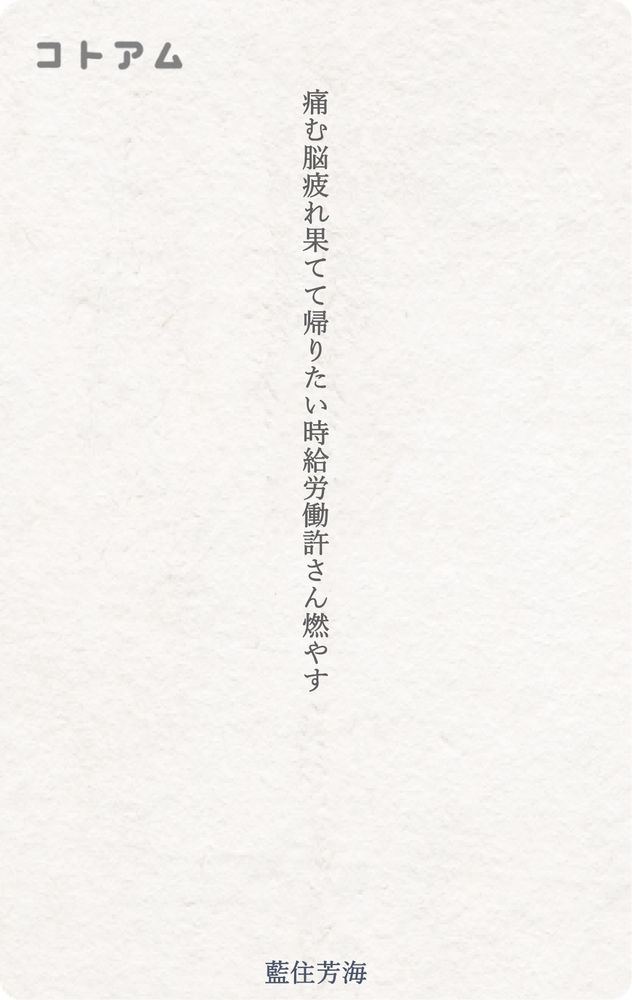 コトアム
痛む脳疲れ果てて帰りたい時給労働許さん燃やす
藍住芳海